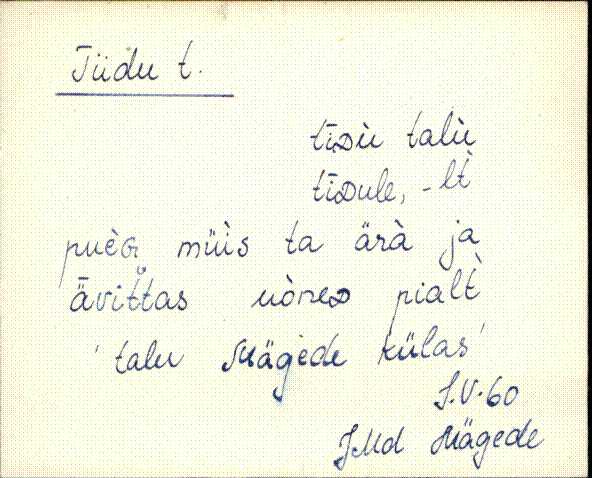 Tiidu t.
tīᴅù talù
tīᴅule, -lt̀
puèɢ müìs ta ärà ja
ävit̊tas uòneᴅ pialt̀
'talu Mägede külas'
S.V.60
JMd Mägede